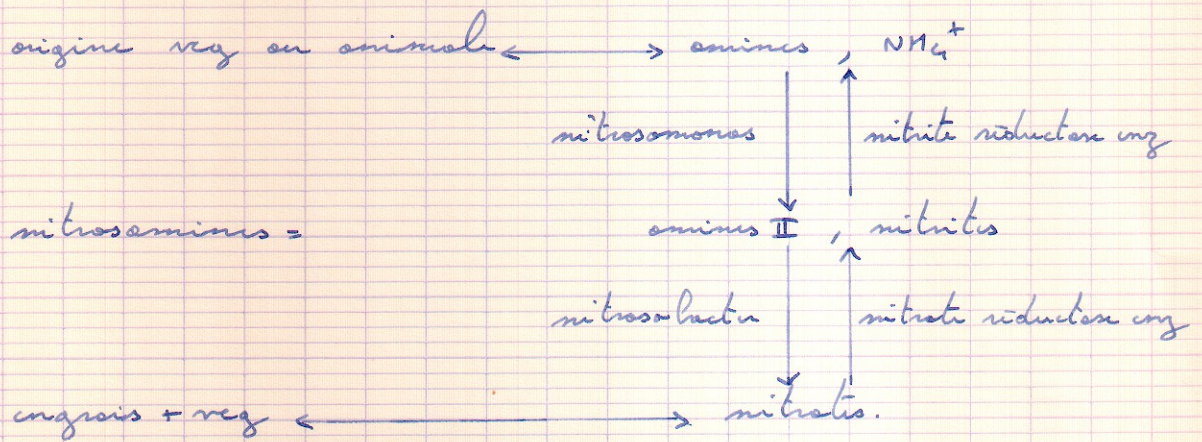 origine veg ou animale ⟷ amines , NH4+
nitrosomonas nitrite réductase enz
nitrosamines = amines II , nitrites
nitrosobacter nitrate réductase enz
engrais + veg ⟷ nitrates.